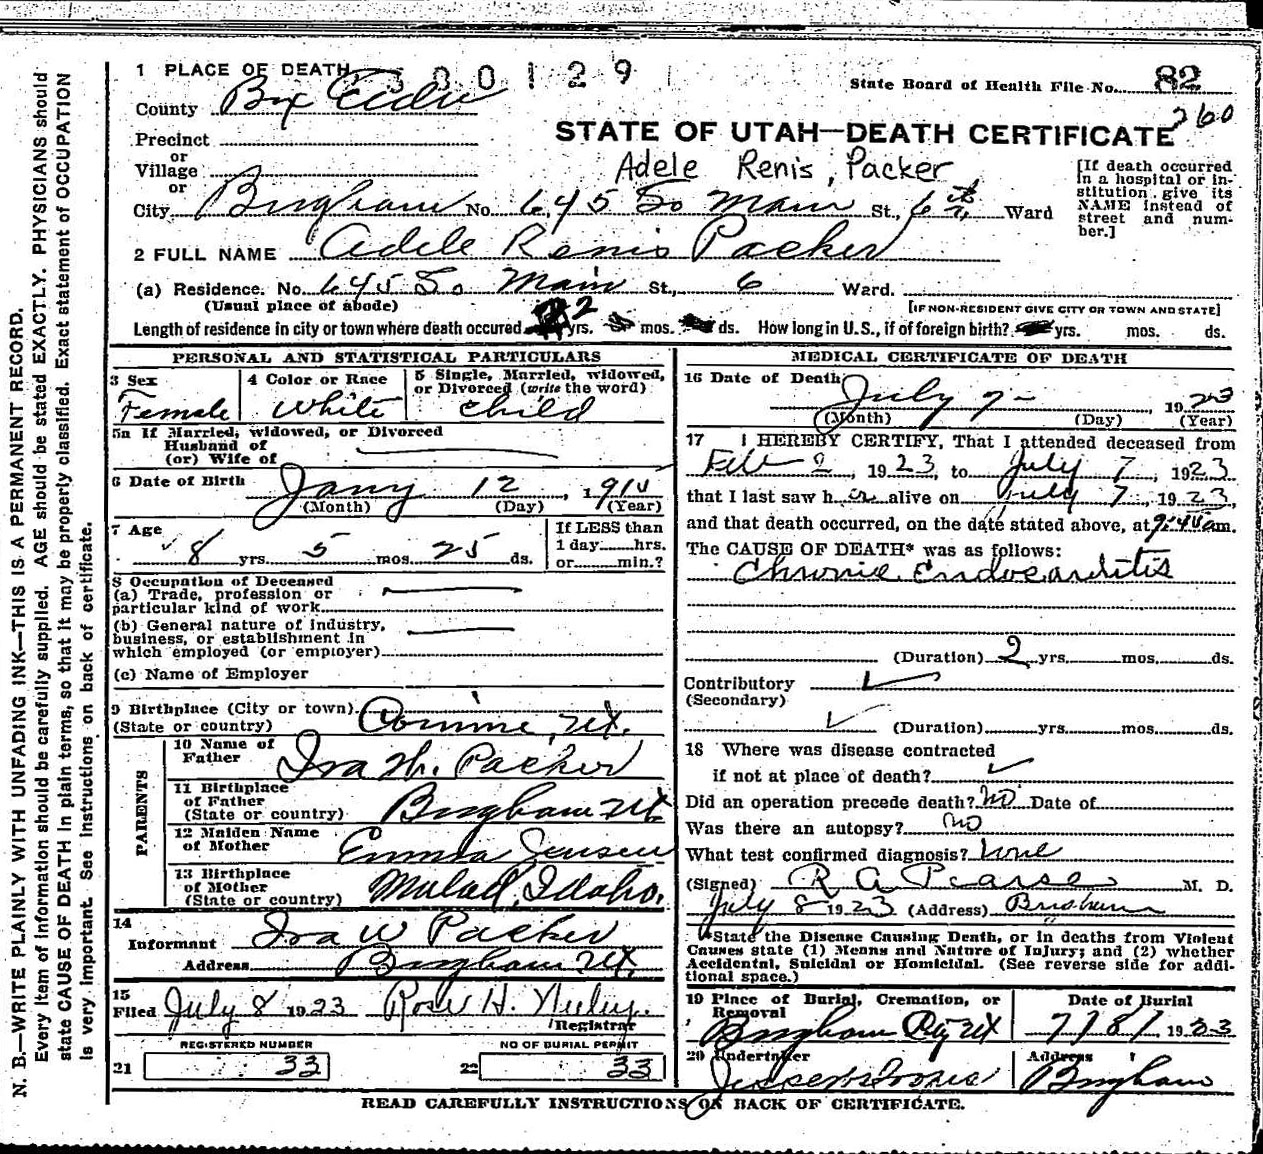 1 PLACE OF DEATH 380129
State Board of Health File No. 82
County Box Elder
260
STATE OF UTAH—DEATH CERTIFICATE
Precinct
or
Village
or
Adele Renis, Packer
[If death occurred in a hospital or institution, give its NAME instead of street and number.]
City Brigham No. 645 So Main St., 6th Ward
2 FULL NAME Adele Renis Packer
(a) Residence. No. 645 So Main St., 6 Ward.
(Usual place of abode)
[IF NON-RESIDENT GIVE CITY OR TOWN AND STATE]
Length of residence in city or town where death occured 2 yrs. mos. ds. How long in U.S., if of foreign birth? yrs. mos. ds.
PERSONAL AND STATISTICAL PARTICULARS
3 Sex
Female
4 Color or Race
White
5 Single, Married, widowed, or Divorced (write the word)
Child
5a If Married, widowed, or Divorced
Husband of
(or) Wife of
6 Date of Birth Jany 12, 191
(Month) (Day) (Year)
7 Age
8 yrs. 5 mos. 25 ds.
If LESS than
1 day hrs.
or min.?
8 Occupation of Deceased
(a) Trade, profession or
particular kind of work
(b) General nature of industry,
business, or establishment in
which employed (or employer)
(c) Name of Employer
9 Birthplace (City or town) Corinne, Ut.
(State or country)
PARENTS
10 Name of
Father Ira W. Packer
11 Birthplace
of Father
(State or country) Brigham Ut
12 Maiden Name
of Mother Emma Jensen
13 Birthplace
of Mother
(State or country) Malad, Idaho.
14
Informant Ira W Packer
Address Brigham Ut.
15
Filed July 8 1923 Rose H. Neeley.
Registrar
REGISTERED NUMBER NO OF BURIAL PERMIT
21 33 22 33
MEDICAL CERTIFICATE OF DEATH
16 Date of Death
July 7 - 1923
(Month) (Day) (Year)
17 I HEREBY CERTIFY, That I attended deceased from
Feb 2, 1923, to July 7, 1923
that I last saw her alive on July 7, 1923,
and that death occurred, on the date stated above, at 9:45 am.
The CAUSE OF DEATH* was as follows:
Chronic Endocarditis
(Duration) 2 yrs. mos. ds.
Contributory
(Secondary)
(Duration) yrs. mos. ds.
18 Where was disease contracted
if not at place of death?
Did an operation precede death? No Date of
Was there an autopsy? No
What test confirmed diagnosis? None
(Signed) R A Pearse M. D.
July 8 1923 (Address) Brigham
*State the Disease Causing Death, or in deaths from Violent
Causes state (1) Means and Nature of Injury; and (2) whether
Accidental, Suicidal or Homicidal. (See reverse side for addi-
tional space.)
19 Place of Burial, Cremation, or
Removal
Brigham City Ut
Date of Burial
7/8/ 1923
20 Undertaker
Address
Brigham
READ CAREFULLY INSTRUCTIONS ON BACK OF CERTIFICATE.
N. B.—WRITE PLAINLY WITH UNFADING INK—THIS IS A PERMANENT RECORD.
Every item of information should be carefully supplied. AGE should be stated EXACTLY. PHYSICIANS should
state CAUSE OF DEATH in plain terms, so that it may be properly classified. Exact statement of OCCUPATION
is very important. See instructions on back of certificate.